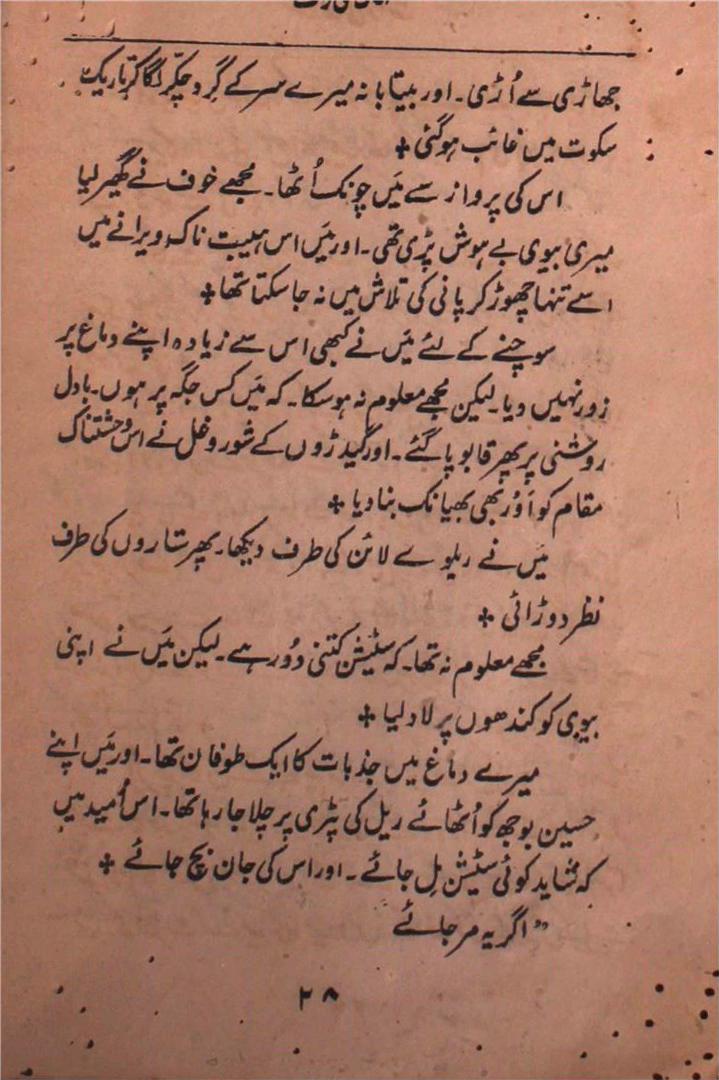 جھاڑی سے اُڑی۔ اور بیتابانہ میرے سر کے گرد چکّر لگا کر تاریک
سکوت میں غائب ہوگئی ✤
اس کی پرواز سے مَیں چونک اُٹھا۔ مجھے خوف نے گھیر لیا
میری بیوی بے ہوش پڑی تھی۔ اور مَیں اس ہیبت ناک ویرانے میں
اسے تنہا چھوڑ کر پانی کی تلاش میں نہ جا سکتا تھا ✤
سوچنے کے لئے مَیں نے کبھی اس سے زیادہ اپنے دماغ پر
زور نہیں دیا۔ لیکن مجھے معلوم نہ ہو سکا۔ کہ مَیں کس جگہ پر ہوں۔ بادل
روشنی پر پھر قابو پا گئے۔ اور گیدڑوں کے شور و غل نے اس وحشتناک
مقام کو اَوْر بھی بھیانک بنا دیا ✤
مَیں نے ریلوے لائن کی طرف دیکھا۔ پھر ستاروں کی طرف
نظر دوڑائی ✤
مجھے معلوم نہ تھا۔ کہ سٹیشن کتنی دُور ہے۔ لیکن مَیں نے اپنی
بیوی کو کندھوں پر لاد لیا ✤
میرے دماغ میں جذبات کا ایک طوفان تھا۔ اور مَیں اپنے
حسین بوجھ کو اُٹھائے ریل کی پٹری پر چلا جا رہا تھا۔ اس اُمید میں
کہ شاید کوئی سٹیشن مِل جائے۔ اور اس کی جان بچ جائے ✤
” اگر یہ مر جائے
۲۸